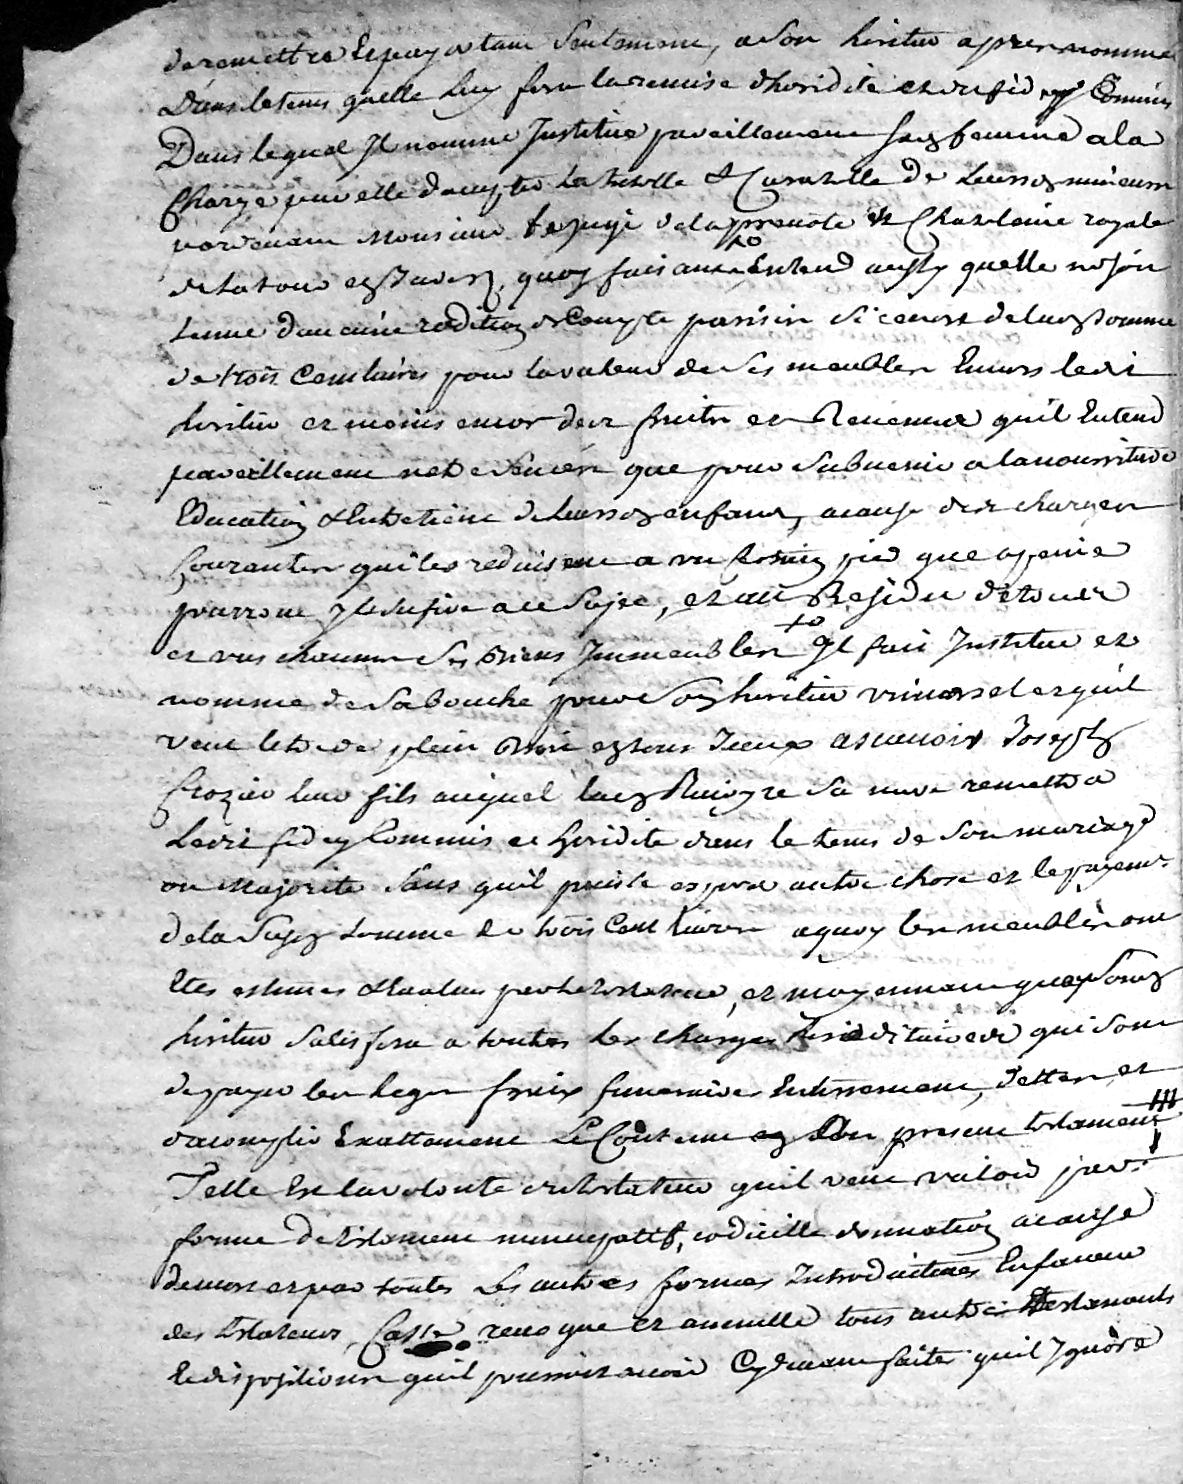 de remettre Et payer tant seulement, a son heritier apres nommé
Dans le tems quelle luy fera la remise dheridité et du fideycommis
Dans lequel Il nomme Institue pareillement sa femme a la
Charge par elle daccepter la tutelle & Curatelle de leurs mineurs
pardevant Monsieur le juge de la prevoté & Chatelainie royale
de la tour quoy faisant Entend aussy quelle ne soit
tenue daucune reddition de Compte parisir si cenest de la somme
de trois Cent livres pour la valeur de ses meubles Envers ledit
heritier et moins encor des fruits et Revenus quil Entend
pareillement que pour subvenir a la nourriture
Education & Entretient de leurs enfans, acause des charges
Courantes qui les reduisent a un pié que apeine
pourront y sufire a ce sujet, et au Residu de tous
et uns chacuns ses Biens Immeubles Il fait Institue et
nomme de sa bouche pour son heritier universel et quil
veut letre de plein Droit ascavoir Joseph
Crozier leur fils auquel sa mere remettra
ledit fideycommis et heridité dans le tems de son mariage
ou Majorité sans quil puisse esperer autre chose et le payemt
de la somme de trois Cent livres aquoy les meubles ont
Etés estimés & Evalués par le testateur, et moyennant quoy son
heritier satisfera a toutes les charges hereditaires qui sont
de payer les legs fraix funeraires Enterrement, dettes et
daccomplir Exattement le Contenu en Son present testament
Telle Est la volonté du testateur quil veut valoir par
forme de testament nuncupatif, codicille donnation acause
de mort et par toutes les autres formes Introduites En faveur
des testateurs, Casse revoque et annulle tous autres testaments
Et dispositions quil pourroit avoir Cydevant faits quil Ignore